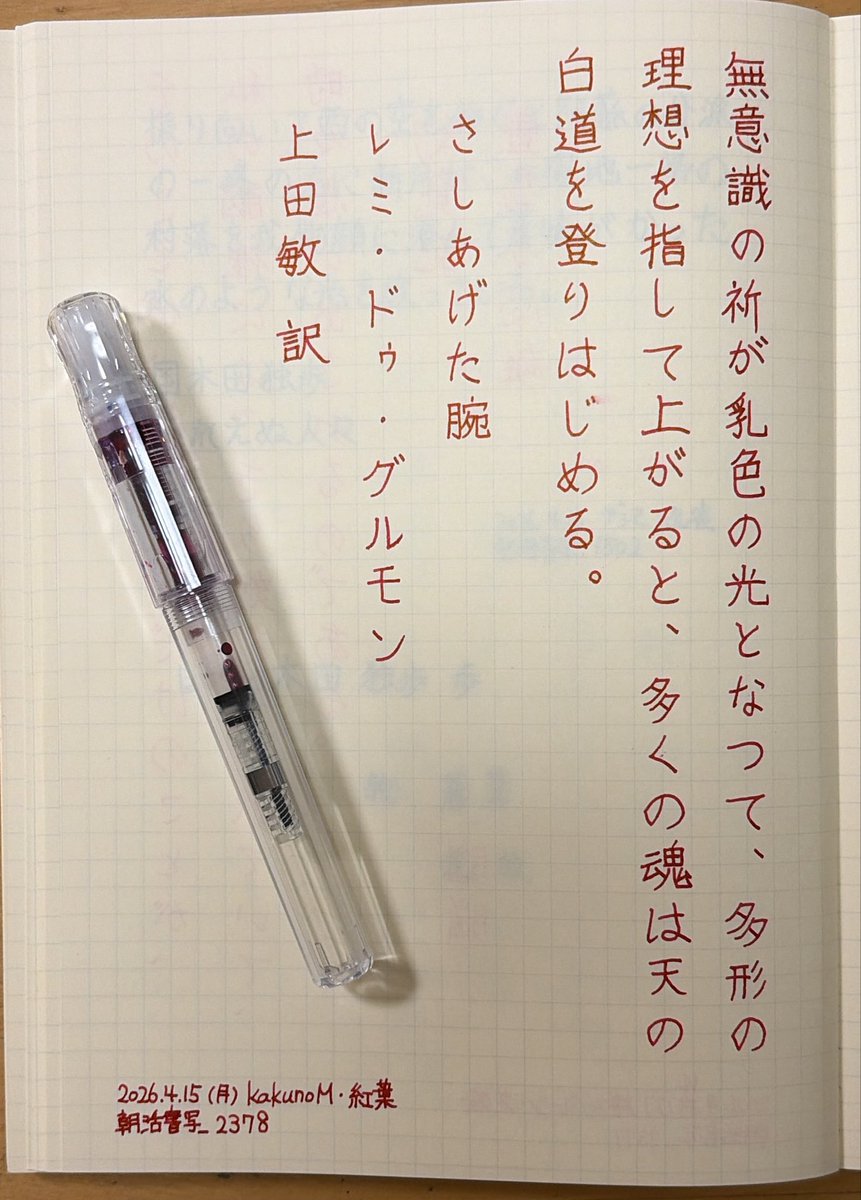 無意識の祈が乳色の光となつて、多形の
理想を指して上がると、多くの魂は天の
白道を登りはじめる。
さしあげた腕
レミ・ドゥ・グルモン
上田敏 訳
2026.4.15(月) kakunoM・紅葉
朝活書写_2378